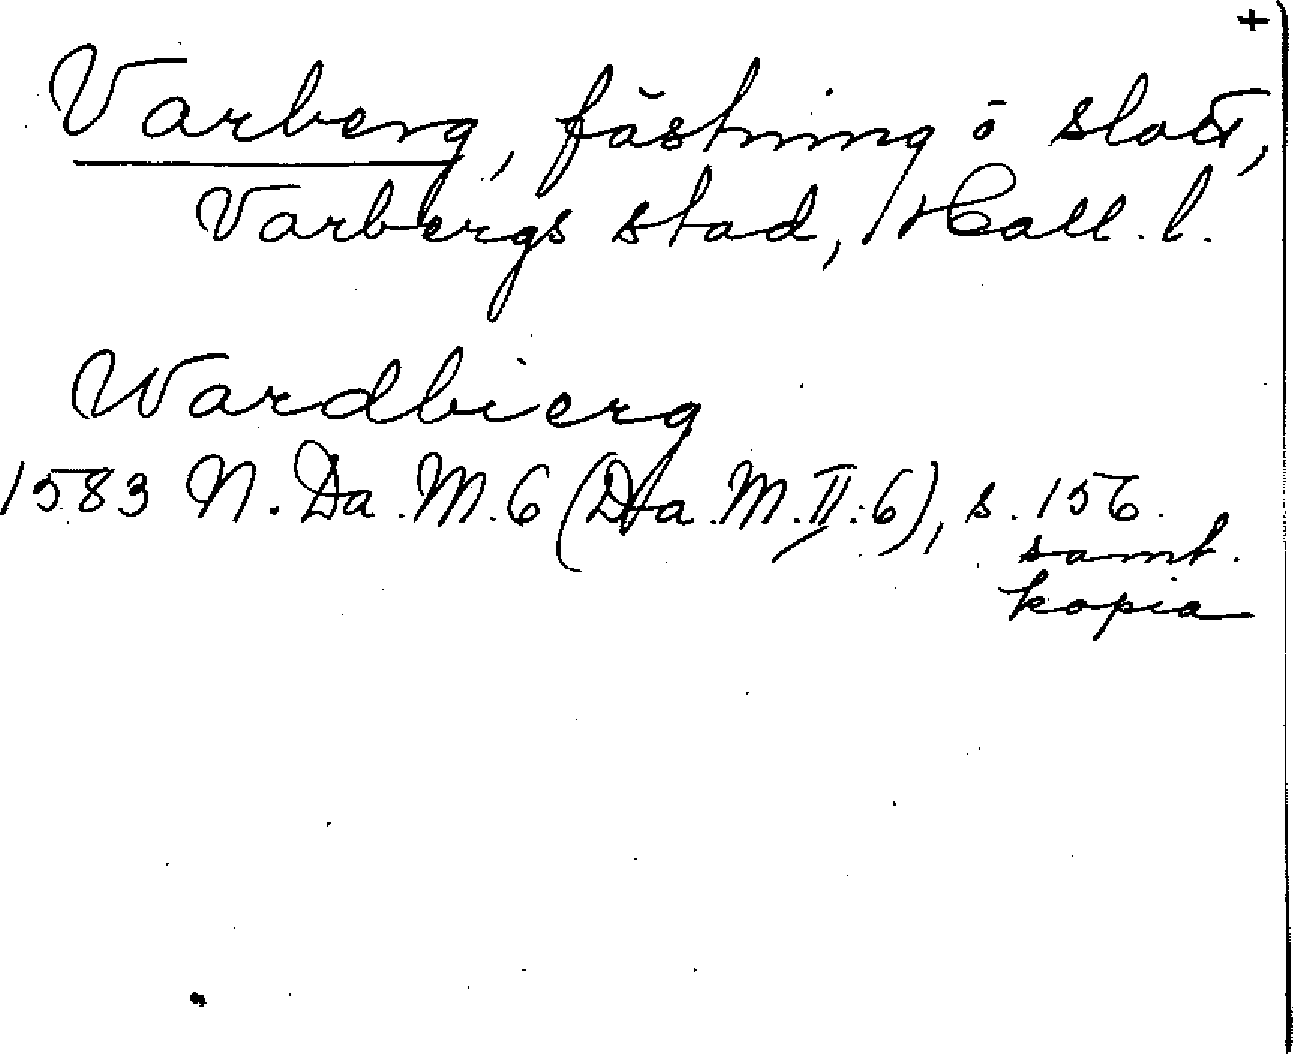 +
Varberg, fästning o slott,
Varbergs stad, Hall. l.
Wardbierg
1583 N. Da. M. 6 (Da. M. II: 6), s. 156.
samt.
kopia